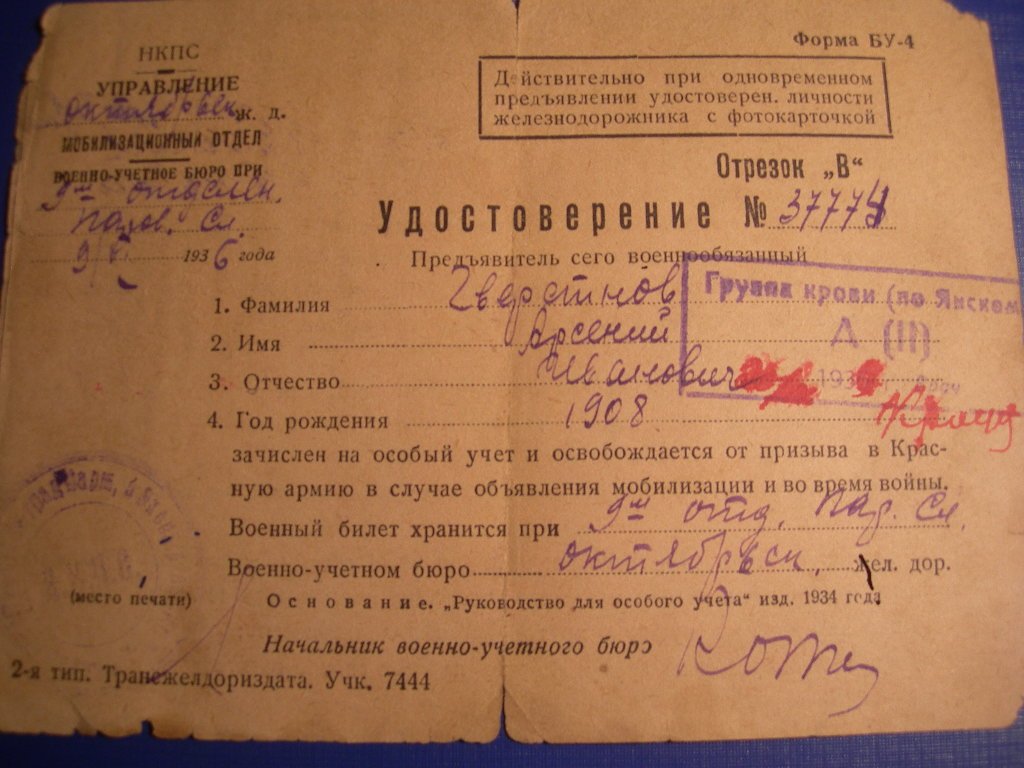 Форма БУ-4
НКПС
УПРАВЛЕНИЕ
октябрьск ж. д.
МОБИЛИЗАЦИОННЫЙ ОТДЕЛ
ВОЕННО-УЧЕТНОЕ БЮРО ПРИ
9м отделен.
Паров. Сл.
1936 года
Действительно при одновременном
предъявлении удостоверен. личности
железнодорожника с фотокарточкой
Отрезок „В“
Удостоверение № 37774
Предъявитель сего военнообязанный
1. Фамилия
2. Имя Арсений
3. Отчество Иванович
4. Год рождения 1908
Группа крови (по Янском
А (II)
зачислен на особый учет и освобождается от призыва в Крас-
ную армию в случае объявления мобилизации и во время войны.
Военный билет хранится при 9м отд. Пар. Сл.
Военно-учетном бюро октябрьск. жел. дор.
(место печати)
Основание. „Руководство для особого учета“ изд. 1934 года
Начальник военно-учетного бюро
2-я тип. Трансжелдориздата. Учк. 7444